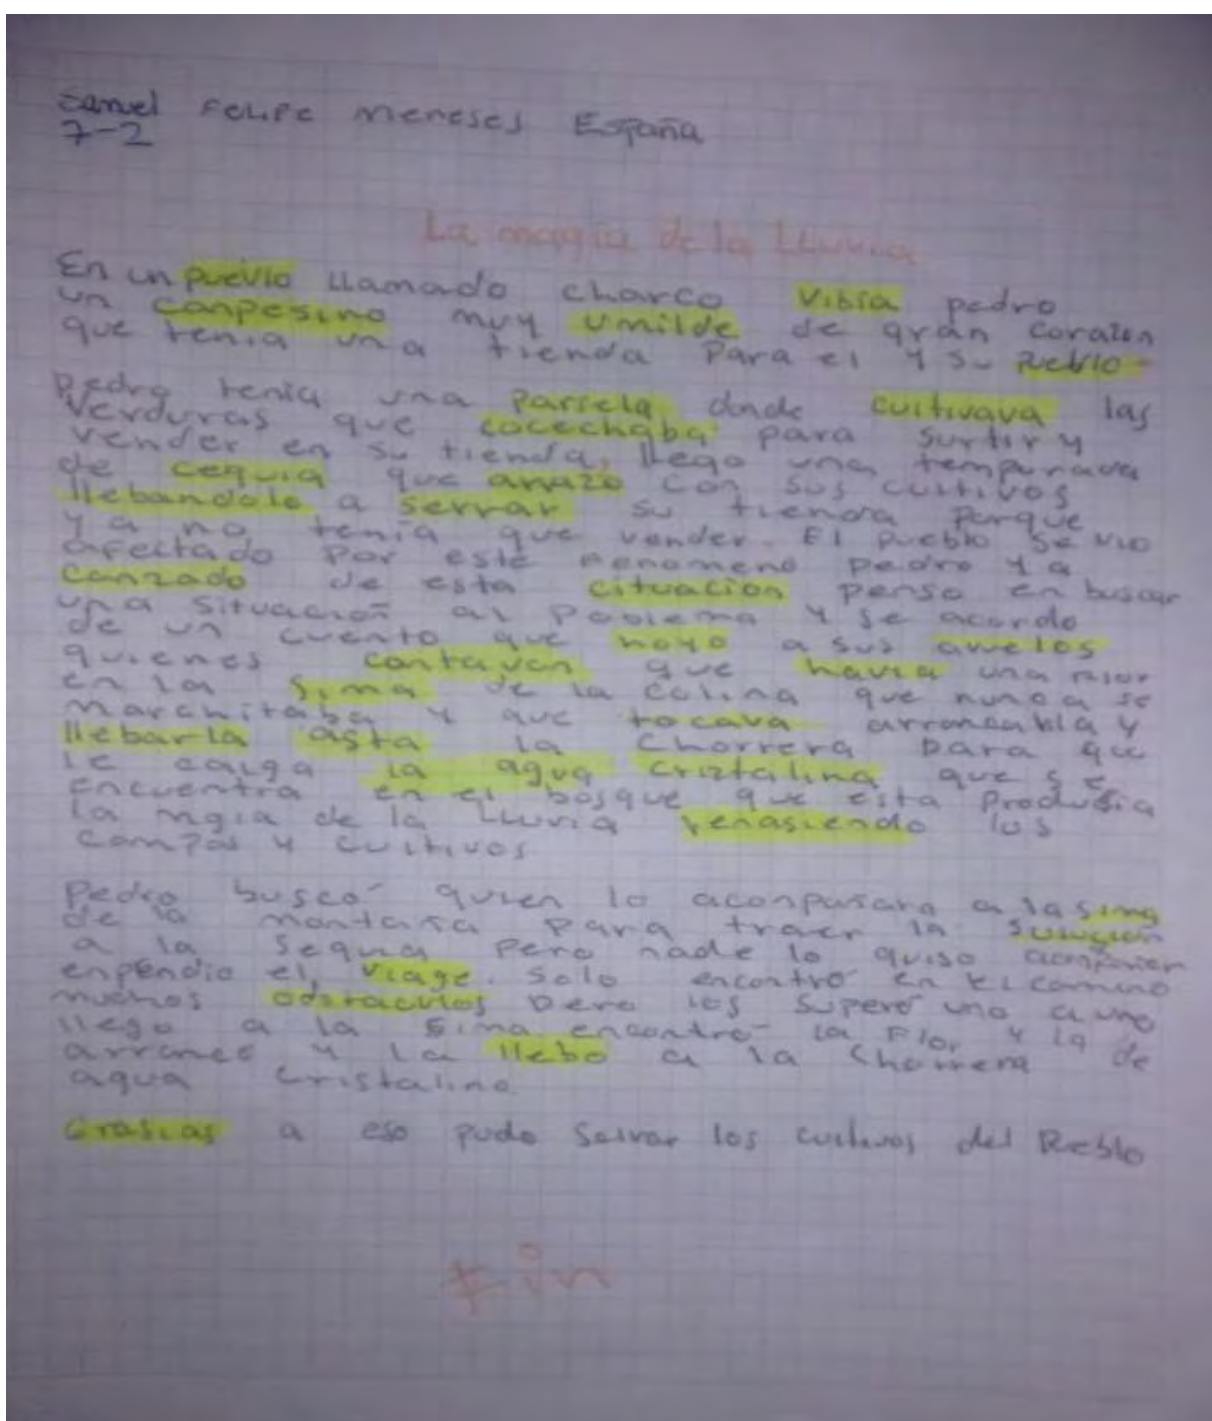 Samuel Felipe Meneses España
7-2
La magia de la Lluvia
En un puevlo llamado charco vibia pedro
un canpesino muy umilde de gran corazon
que tenia una tienda para el y su pueblo
Pedro tenia una parsela donde cultivava las
verduras que cocechaba para surtir y
vender en su tienda, llego una temporada
de cequia que arrazo con sus cultivos
llebandolo a serrar su tienda porque
ya no tenia que vender. El pueblo se vio
afectado por este fenomeno pedro ya
canzado de esta cituacion penso en buscar
una situacion al poblema y se acordo
de un cuento que hoyo a sus avuelos
quienes contavan que havia una flor
en la sima de la colina que nunca se
marchitaba y que tocava arrancarla y
llebarla asta la chorrera para que
le caiga la agua criztalina que se
encuentra en el bosque que esta produsia
la mgia de la lluvia renasiendo los
campos y cultivos
Pedro buscó quien lo aconpañara a la sima
de la montaña para traer la solucion
a la sequia pero nade lo quiso aconpañar
enpendio el viage. Solo encontró en el camino
muchos obstaculos pero los superó uno a uno
llego a la sima encontró la flor y la
arranco y la llebo a la chorrera de
agua cristalina
Grasias a eso pudo salvar los cultivos del Pueblo
Fin